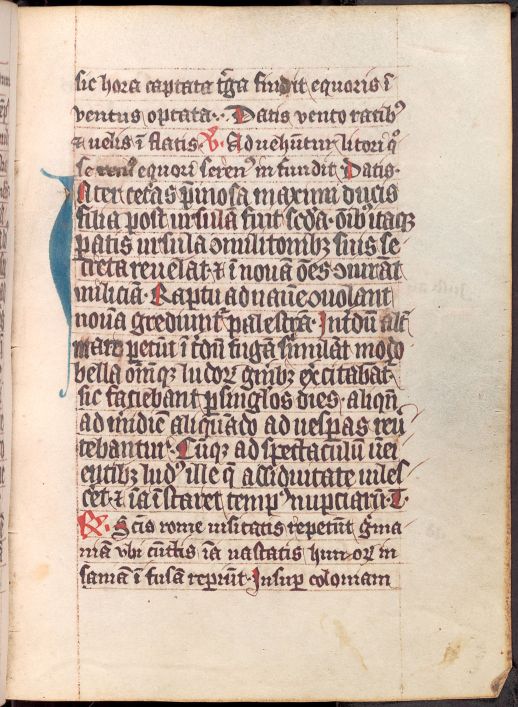 sic hora captata t͛ga findit equoris ī
ventus optata· Datis vento ratibꝰ
⁊ uelis ī flatis· V̸ Aduehūtur litori qͦ
se equori serenꝰ infundit Datis·
Inter ceͭas p̄inosa maximi ducis
filia post ursulā fuit seda· oībꝰ itaqꝫ
patis ursula ꝯmilitonibꝫ suis se
creta reuelat ⁊ ī nouā oēs ꝯiurāt
miliciā· Raptū ad naue ꝯuolant
noua grediunt᷑ palestrā· Int̄dū
petūt ī t̄dū fugā simulāt modo
bella om̄iqꝫ ludoꝝ gn̄ibꝫ excitabāt᷑
sic faciebant ꝑ singlos dies· aliqn̄
ad m̄idiē aliquādo ad uesꝑas reu̅
tebantur· Cūqꝫ ad spectaculū īuēi
entibꝫ ludꝰ ille q̄ assiduitate uiles
cēt· ⁊ iā īstaret tempꝰ nupciaꝝ· T·
R̸· Scīs rome uisitatis repetūt g̓ma
niā vbi cūctis iā uastatis hunoꝝ in
saniā īfusā reꝑiūt· Insuꝑ coloniam